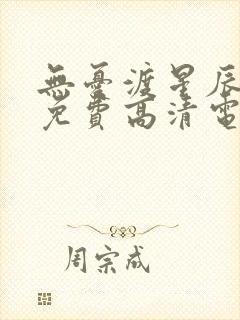 無憂渡星辰
免費高清電
周宗成